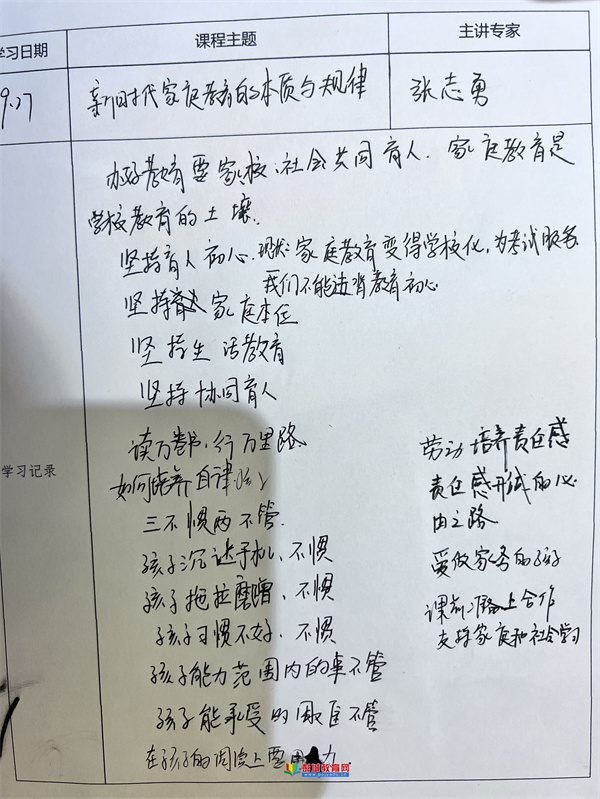 学习日期 课程主题 主讲专家
9.27 新时代家庭教育的本质与规律 张志勇
办好教育要家、校、社会共同育人. 家庭教育是
学校教育的土壤.
坚持育人初心. 现状:家庭教育变得学校化,为考试服务
我们不能违背教育初心
坚持家庭本位
坚持生活教育
坚持协同育人
读万卷书,行万里路
如何培养自律
三不惯两不管.
孩子沉迷手机,不惯
孩子拖拉磨蹭,不惯
孩子习惯不好,不惯
孩子能力范围内的事不管
孩子能承受的困难不管
在孩子的阅读上要用力
学习记录
劳动培养责任感
责任感形成的必
由之路
爱做家务的孩子
课前准备上合作
支持家庭和社会学习
教育网